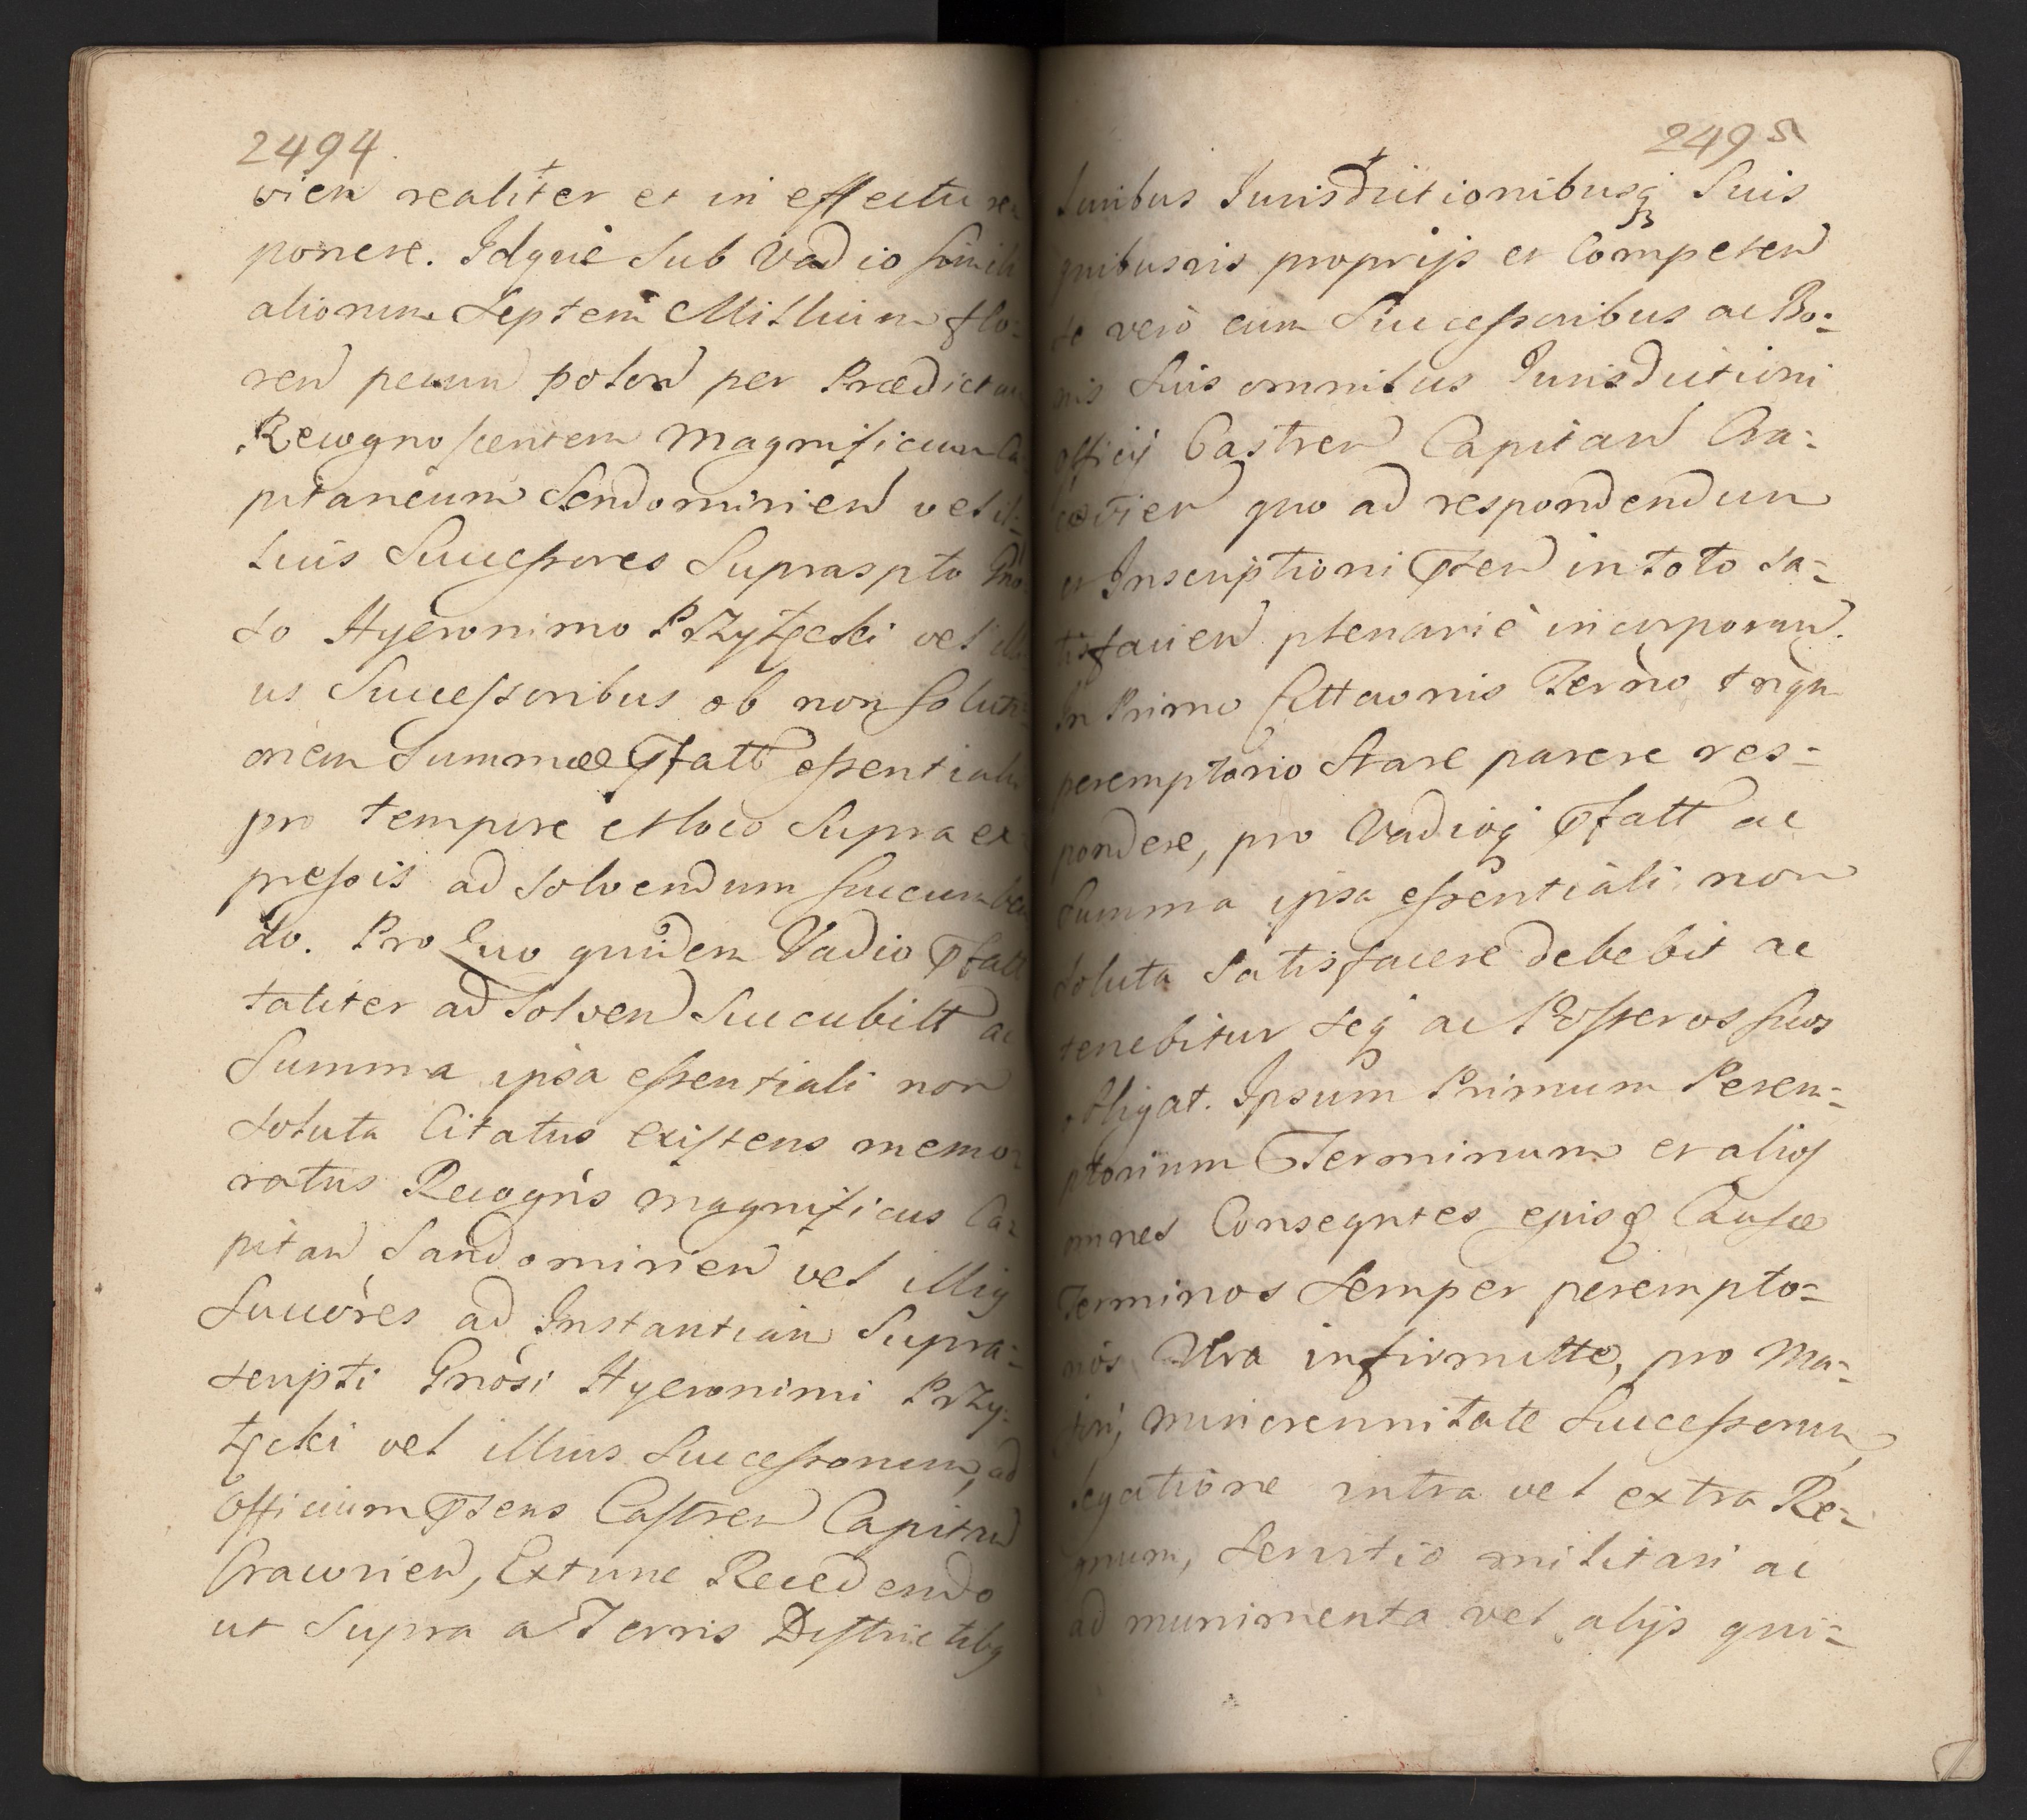 2494
vien realiter et in effectu re
ponere. Idque Sub Vadio simili
aliorum Septem Millium flo:
ren pecun polon per Prædictum
Recognoscentem Magnificum Ca
pitaneum Sendomirien vel il:
lius Successores Supraspto Gno
so Hyeronimo Przyłęcki vel illi
us Successoribus ob non soluti
onem Summæ Pfatt essentialis
pro tempore et loco Supra ex
pressis ad solvendum succumben
do. Pro quo quidem Vadio Pfatt
taliter ad solven Succubitt ac
Summa ipsa essentiali non
soluta Citatus existens memo
ratus Recogns Magnificus Ca:
pitan Sandomirien vel illiq
Succores ad Instantiam Supra:
scripti Gnosi Hyeronimi Przy:
łęcki vel illius Successorum, ad
Officium Psens Castren Capitan
Cracovien, Extunc Recedendo
ut Supra a Terris Districtibq
2495
Iuribus Jurisdictionibusq Suis
quibusvis proprijs et Competen
se vero cum Successoribus ac Bo:
nis Suis omnibus Jurisdictioni
officij Castren Capitan Cra:
covien quo ad respondendum
et Inscriptioni Psen in toto sa:
tisfacien plenarie incorporan.
In Primo Cittaonis Termo tnqu
peremptorio Stare parere res:
pondere, pro Vadioq Pfatt ac
Summa ipsa essentiali non
soluta Satisfacere debebit ac
tenebitur seq ac Posteros suos
obligat. Ipsum Primum Perem:
ptorium Terminum et alios
omnes Consequtes ejusq Causæ
Terminos semper perempto:
rios Vera infirmitte, pro Ma:
jori, minorennitate Successorum,
legatione intra vel extra Re:
gnum, Servitio militari ac
ad munimenta vel alijs qui: